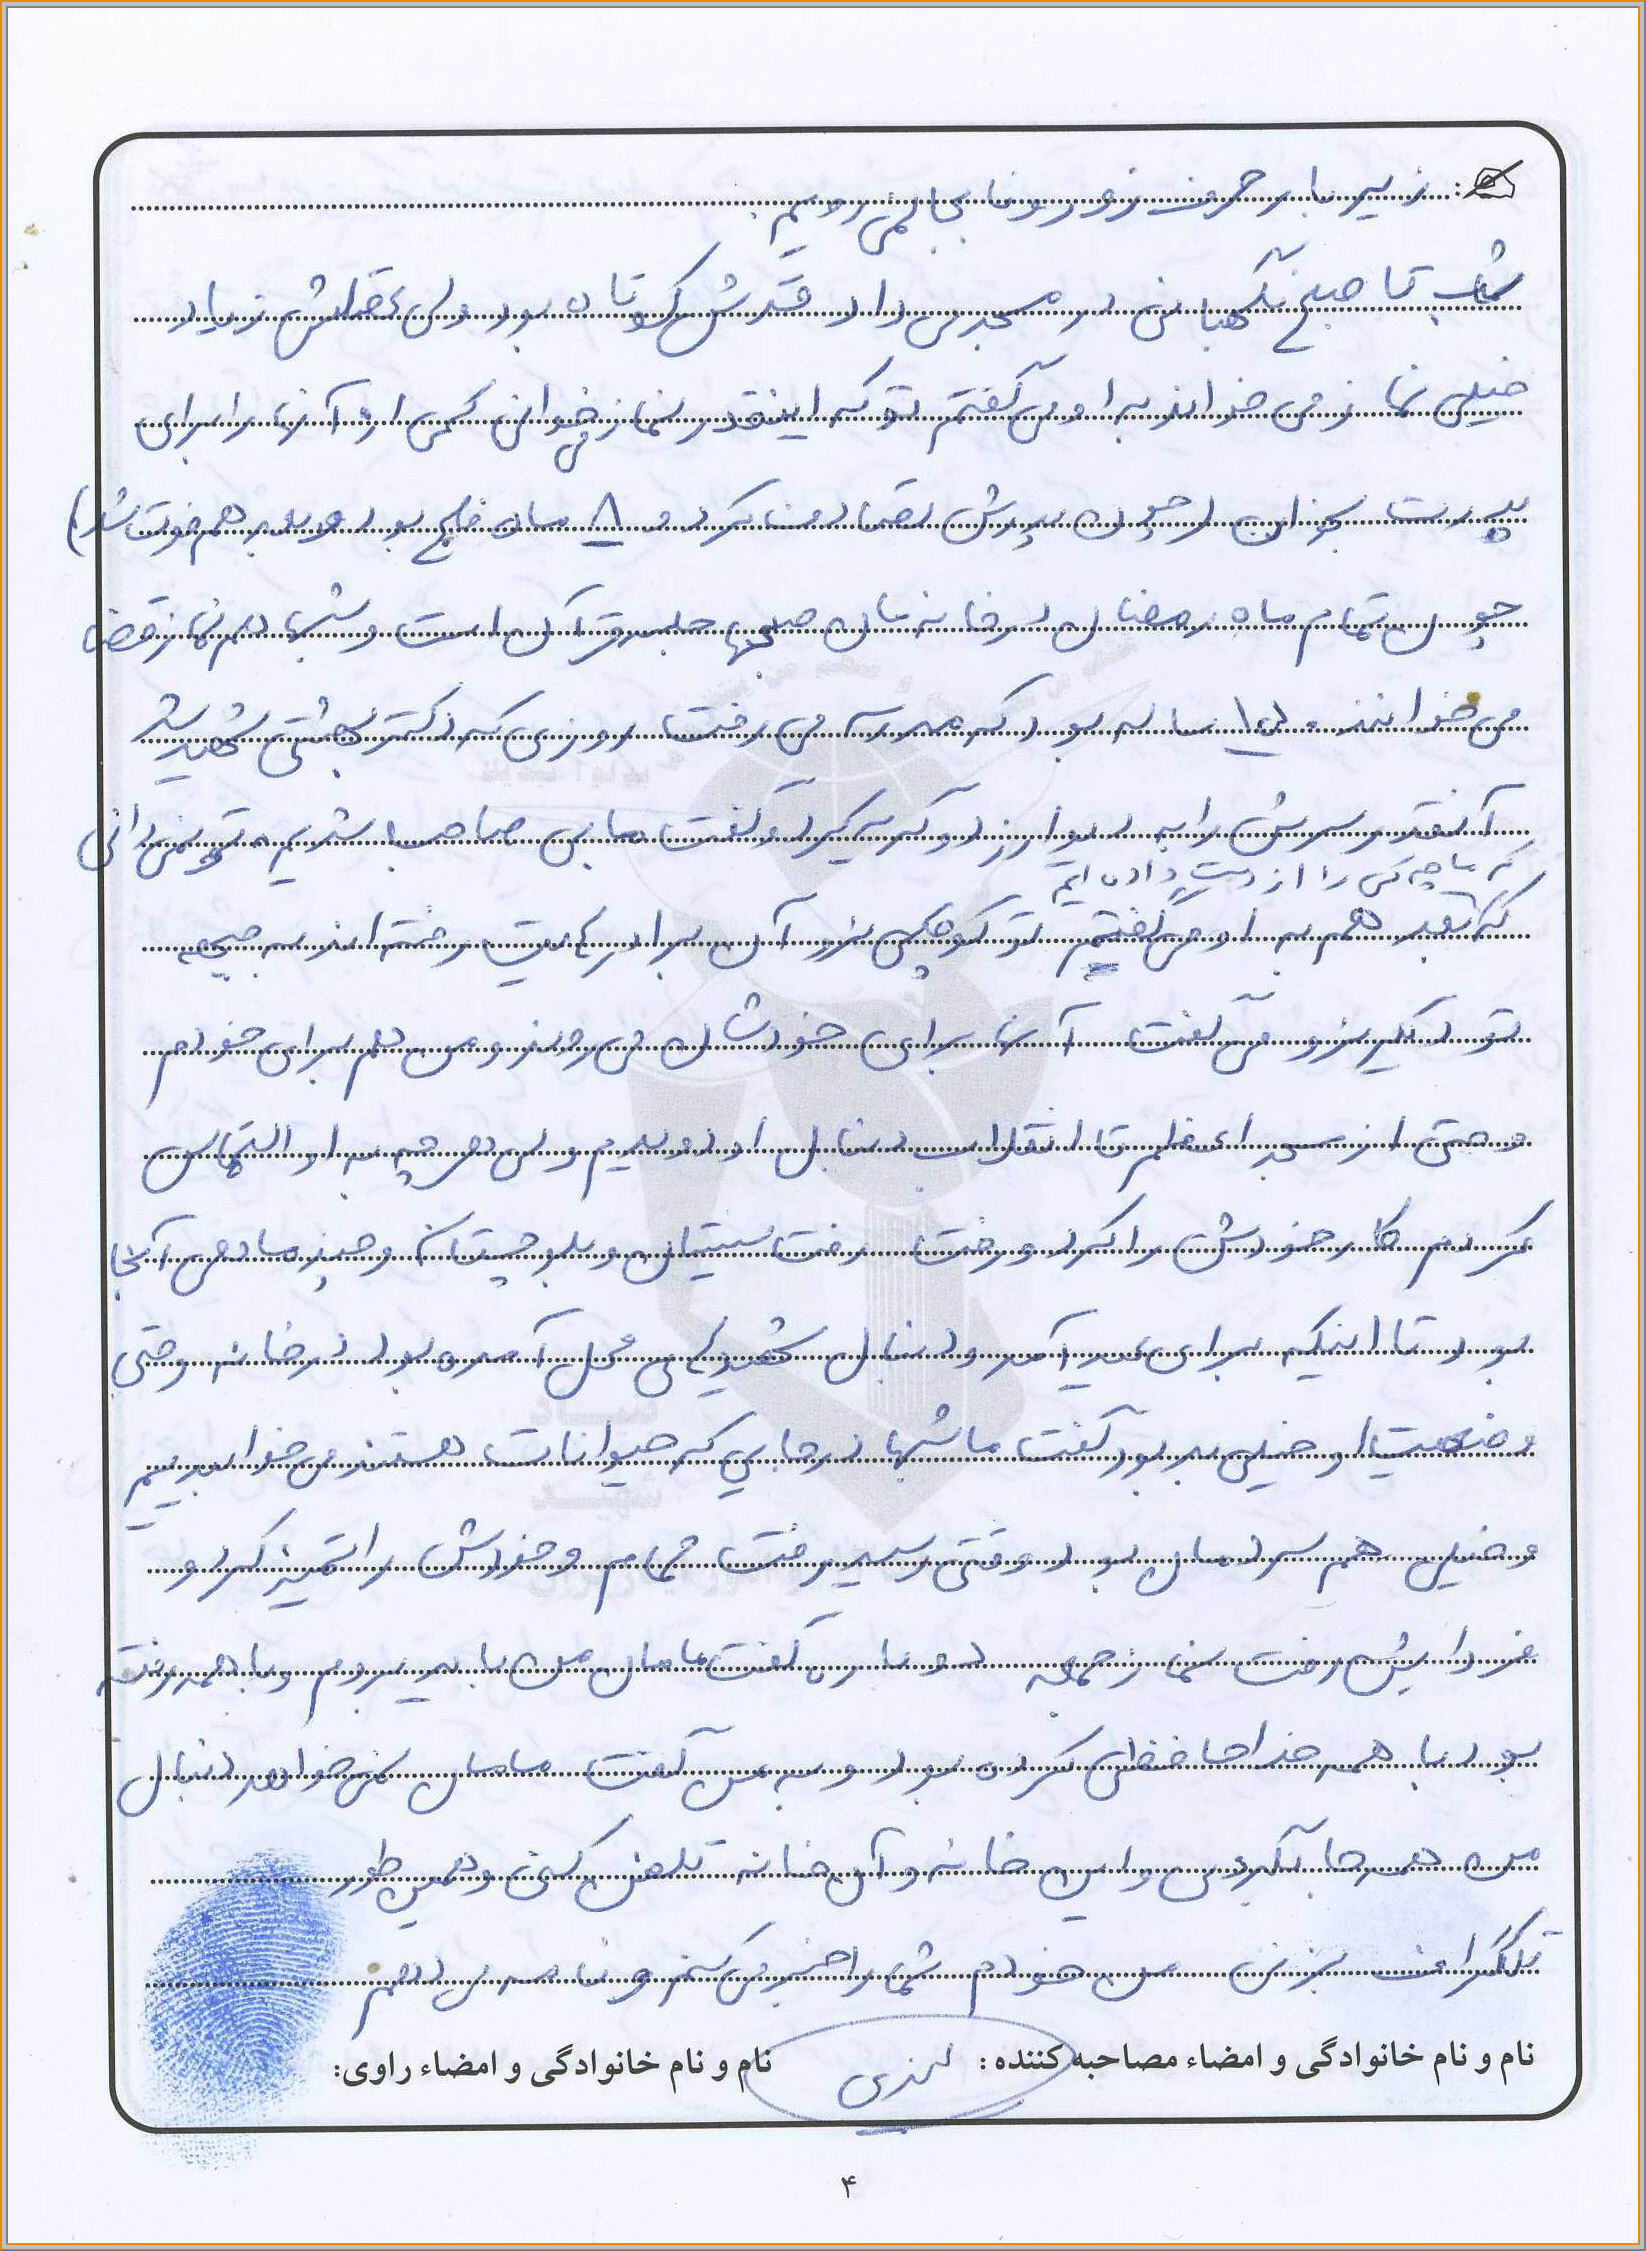 زیر بار حرف زور و نا بجا نمی رویم.
شب تا صبح نگهبانی در مسجد می داد قدش کوتاه بود ولی عقلش زیاد
خیلی نماز می خواند به او می گفتم تو که اینقدر نماز می خوانی کمی از آنها را برای
پدرت بخوان (چون پدرش تصادف کرد و ۸ سال فلج بود و بعد هم فوت شد)
چون تمام ماه رمضان در خانه مان صبحها جلسه قرآن است و شبها هم نماز قضا
می خوانند و ۱۵ ساله بود که مدرسه می رفت روزی که دکتر بهشتی شهید شد
آنقدر سرش را به دیوار زد و گریه کرد و گفت ما بی صاحب شدیم تو نمی دانی
که ما چه کسی را از دست داده ایم
که بعد هم به او می گفتیم تو کوچکی نرو آن برادرهایت رفته اند به جبهه
تو دیگر نرو می گفت آنها برای خودشان می روند و من هم برای خودم
و حتی از مسجد اعظم تا انقلاب دنبال او دویدیم ولی هر چه به او التماس
کردم کار خودش را کرد و رفت رفت سیستان و بلوچستان و چند ماهی آنجا
بود تا اینکه برای عید آمد و دنبال شهیدهای محل آمده بود در خانه وقتی
وضعیت او خیلی بد بود گفت ما شبها در جایی که حیوانات هستند می خوابیدیم
و خیلی هم سردمان بود وقتی رسید رفت حمام و خودش را تمیز کرد و
فردایش رفت نماز جمعه دوباره گفت مامان من باید بروم و با همه رفته
بود با همه خداحافظی کرده بود و به من گفت مامان نمی خواهد دنبال
من همه جا بگردی و این خانه و آن خانه تلفن کنی و همین طور
تلگراف بزنی من خودم شما را خبر می کنم و نامه می دهم
نام و نام خانوادگی و امضاء مصاحبه کننده: نام و نام خانوادگی و امضاء راوی:
۴